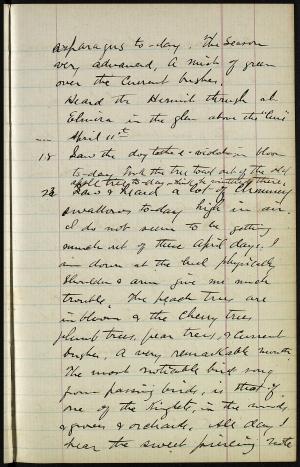 asparagus to-day. The season
very advanced, A mist of green
over the Currant bushes.
Heard the Hermit thrush at
Elmira in the glen above the "Cure"
April 11th
18 Saw the dog toothed-violet in bloom
to-day. Took the tree toad out of the old
apple tree to-day
22 Saw & heard a lot of Chimney
swallows to-day high in air.
I do not seem to be getting
much out of these April days. I
am down at the heel physically
Shoulder & arm give me much
trouble. The peach trees are
in bloom & the cherry trees,
plumb trees, pear trees, & Currant
bushes. A very remarkable month.
The most noticable bird song
from passing birds, is that of
one of the Kinglets, in the woods
& groves & orchards. All day I
hear the sweet piercing note